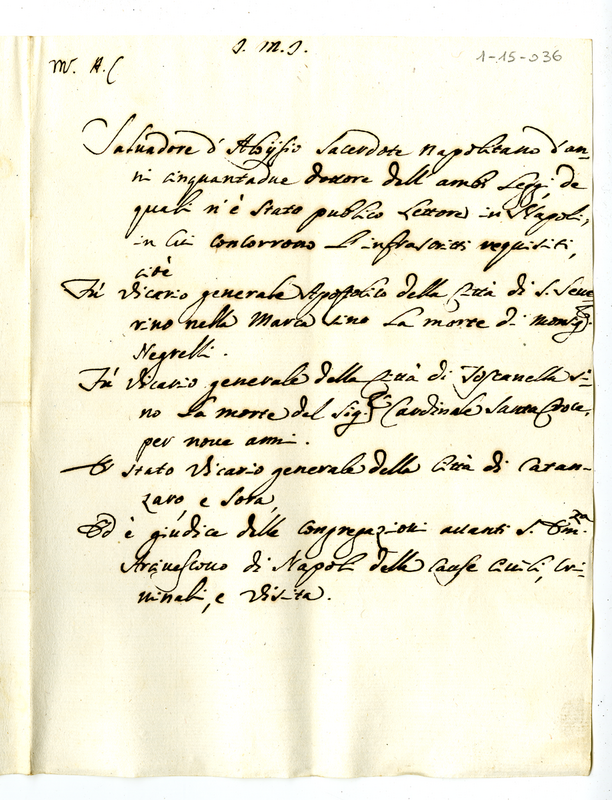 J. M. J.
1-15-036
M. A. C
Salvadore d'Aloysio Sacerdote Napolitano d'an-
ni cinquantadue dottore dell ambe Leggi, de
quali n'è stato publico Lettore in Napoli,
in cui concorrono l'infrascritti requisiti,
cioè
Fù Vicario generale Apostolico della Città di S. Seve
rino nella Marca sino la morte di Monsig.r
Negrelli.
Fù Vicario generale della Città di Toscanella si-
no la morte del Sig.r Cardinale Santa Croce,
per nove anni.
È stato Vicario generale della Città di Catan-
zaro, e Sora,
Ed è giudice delle Congregazioni avanti S. Em.za
Arcivescovo di Napoli delle cause Civili, Cri-
minali, e Visita.